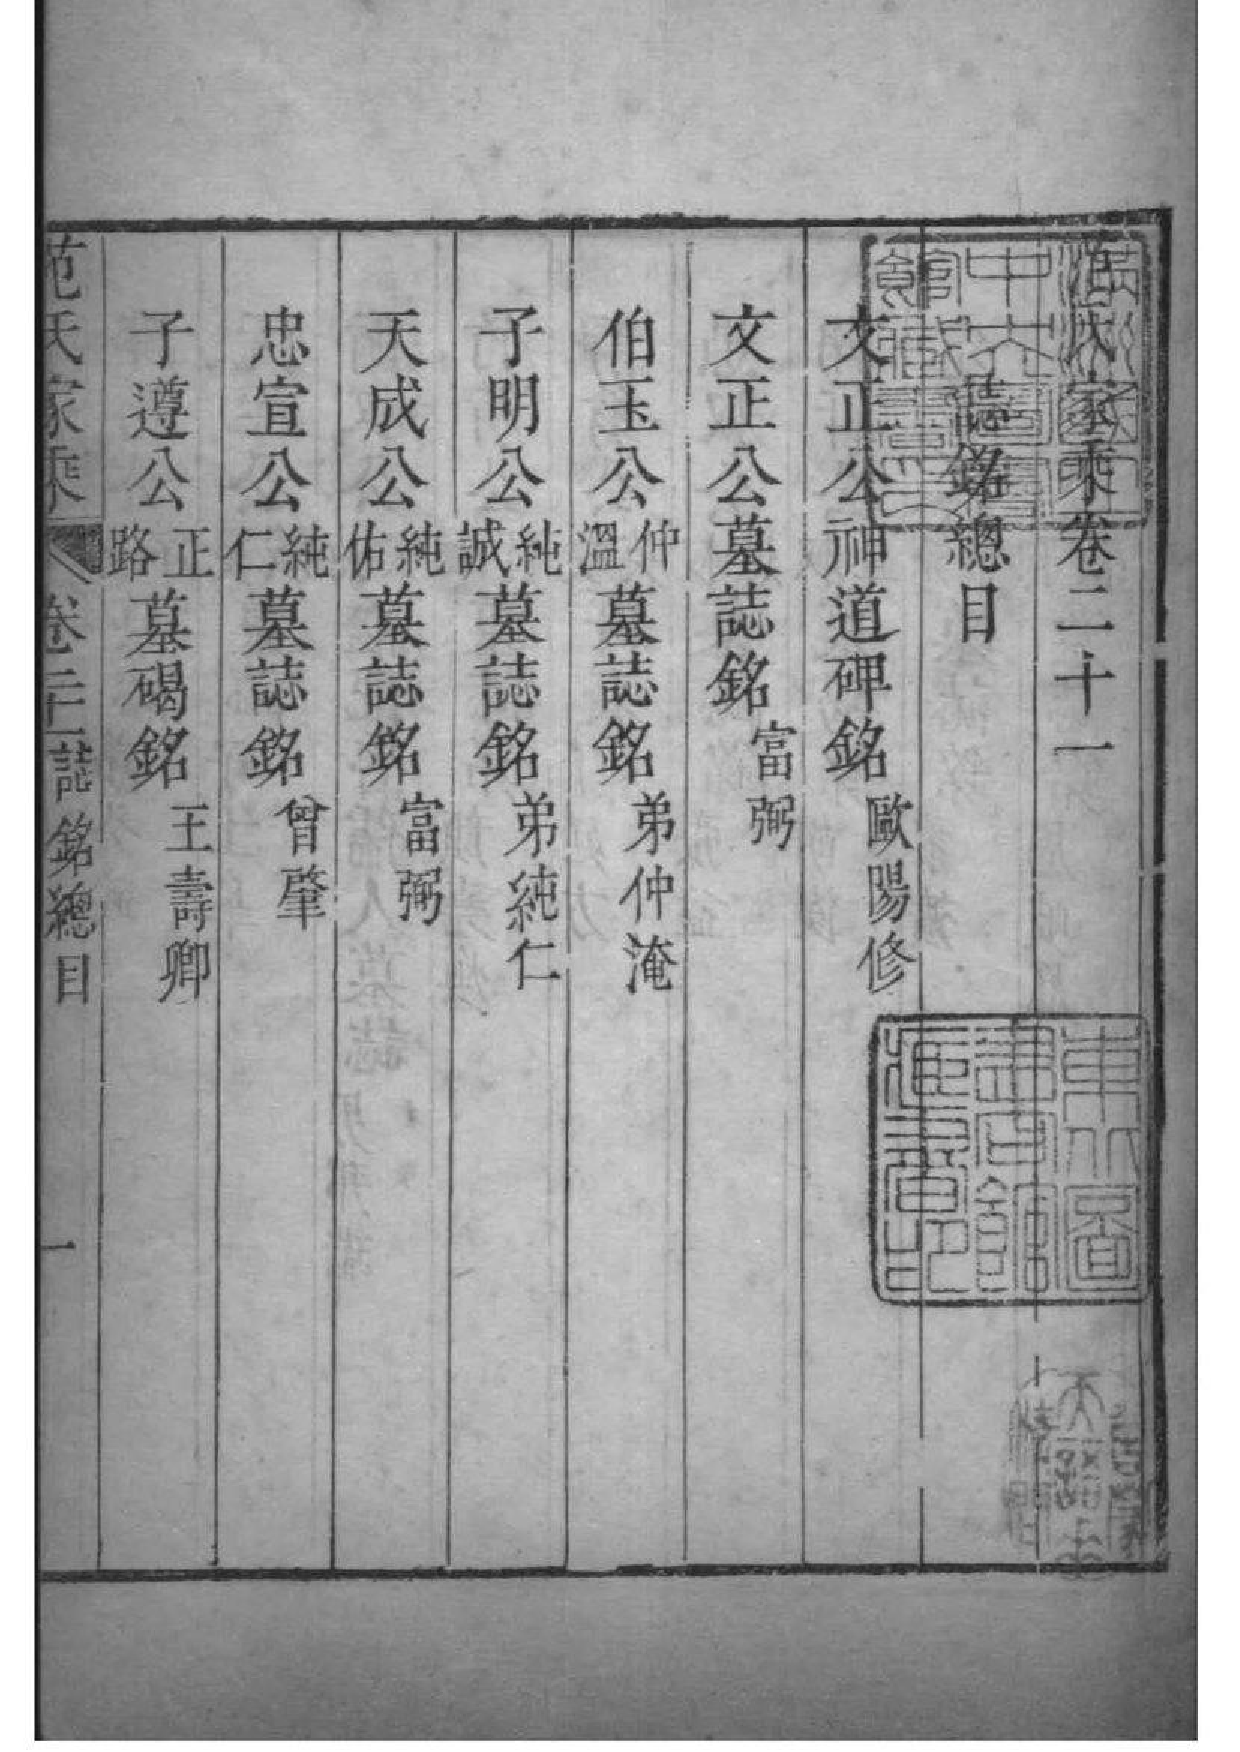 范氏家乘卷二十一
誌銘總目
文正公神道碑銘歐陽修
文正公墓誌銘富弼
伯玉公仲溫墓誌銘弟仲淹
子明公純誠墓誌銘弟純仁
天成公純佑墓誌銘富弼
忠宣公純仁墓誌銘曾肇
子遵公正路墓碣銘王壽卿
范氏家乘卷二十一誌銘總目 一
東北圖書館所藏善本